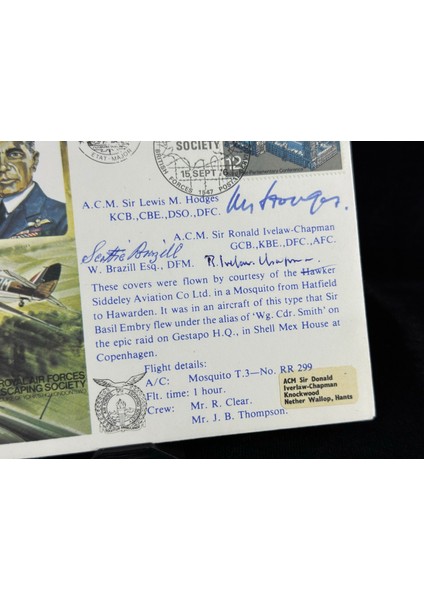 SOCIETY
15 SEPT 7
BRITISH FORCES 1947 POSTAL
ETAT-MAJOR
12
Parliamentary Conference
A.C.M. Sir Lewis M. Hodges
KCB.,CBE.,DSO.,DFC.
A.C.M. Sir Ronald Ivelaw-Chapman
GCB.,KBE.,DFC.,AFC.
R. Ivelaw-Chapman
W. Brazill Esq., DFM.
These covers were flown by courtesy of the Hawker
Siddeley Aviation Co Ltd. in a Mosquito from Hatfield
to Hawarden. It was in an aircraft of this type that Sir
Basil Embry flew under the alias of 'Wg. Cdr. Smith' on
the epic raid on Gestapo H.Q., in Shell Mex House at
Copenhagen.
Flight details:
A/C: Mosquito T.3—No. RR 299
Flt. time: 1 hour.
Crew: Mr. R. Clear.
Mr. J. B. Thompson.
ACM Sir Donald
Iverlaw-Chapman
Knockwood
Nether Wallop, Hants
ROYAL AIR FORCES
ESCAPING SOCIETY